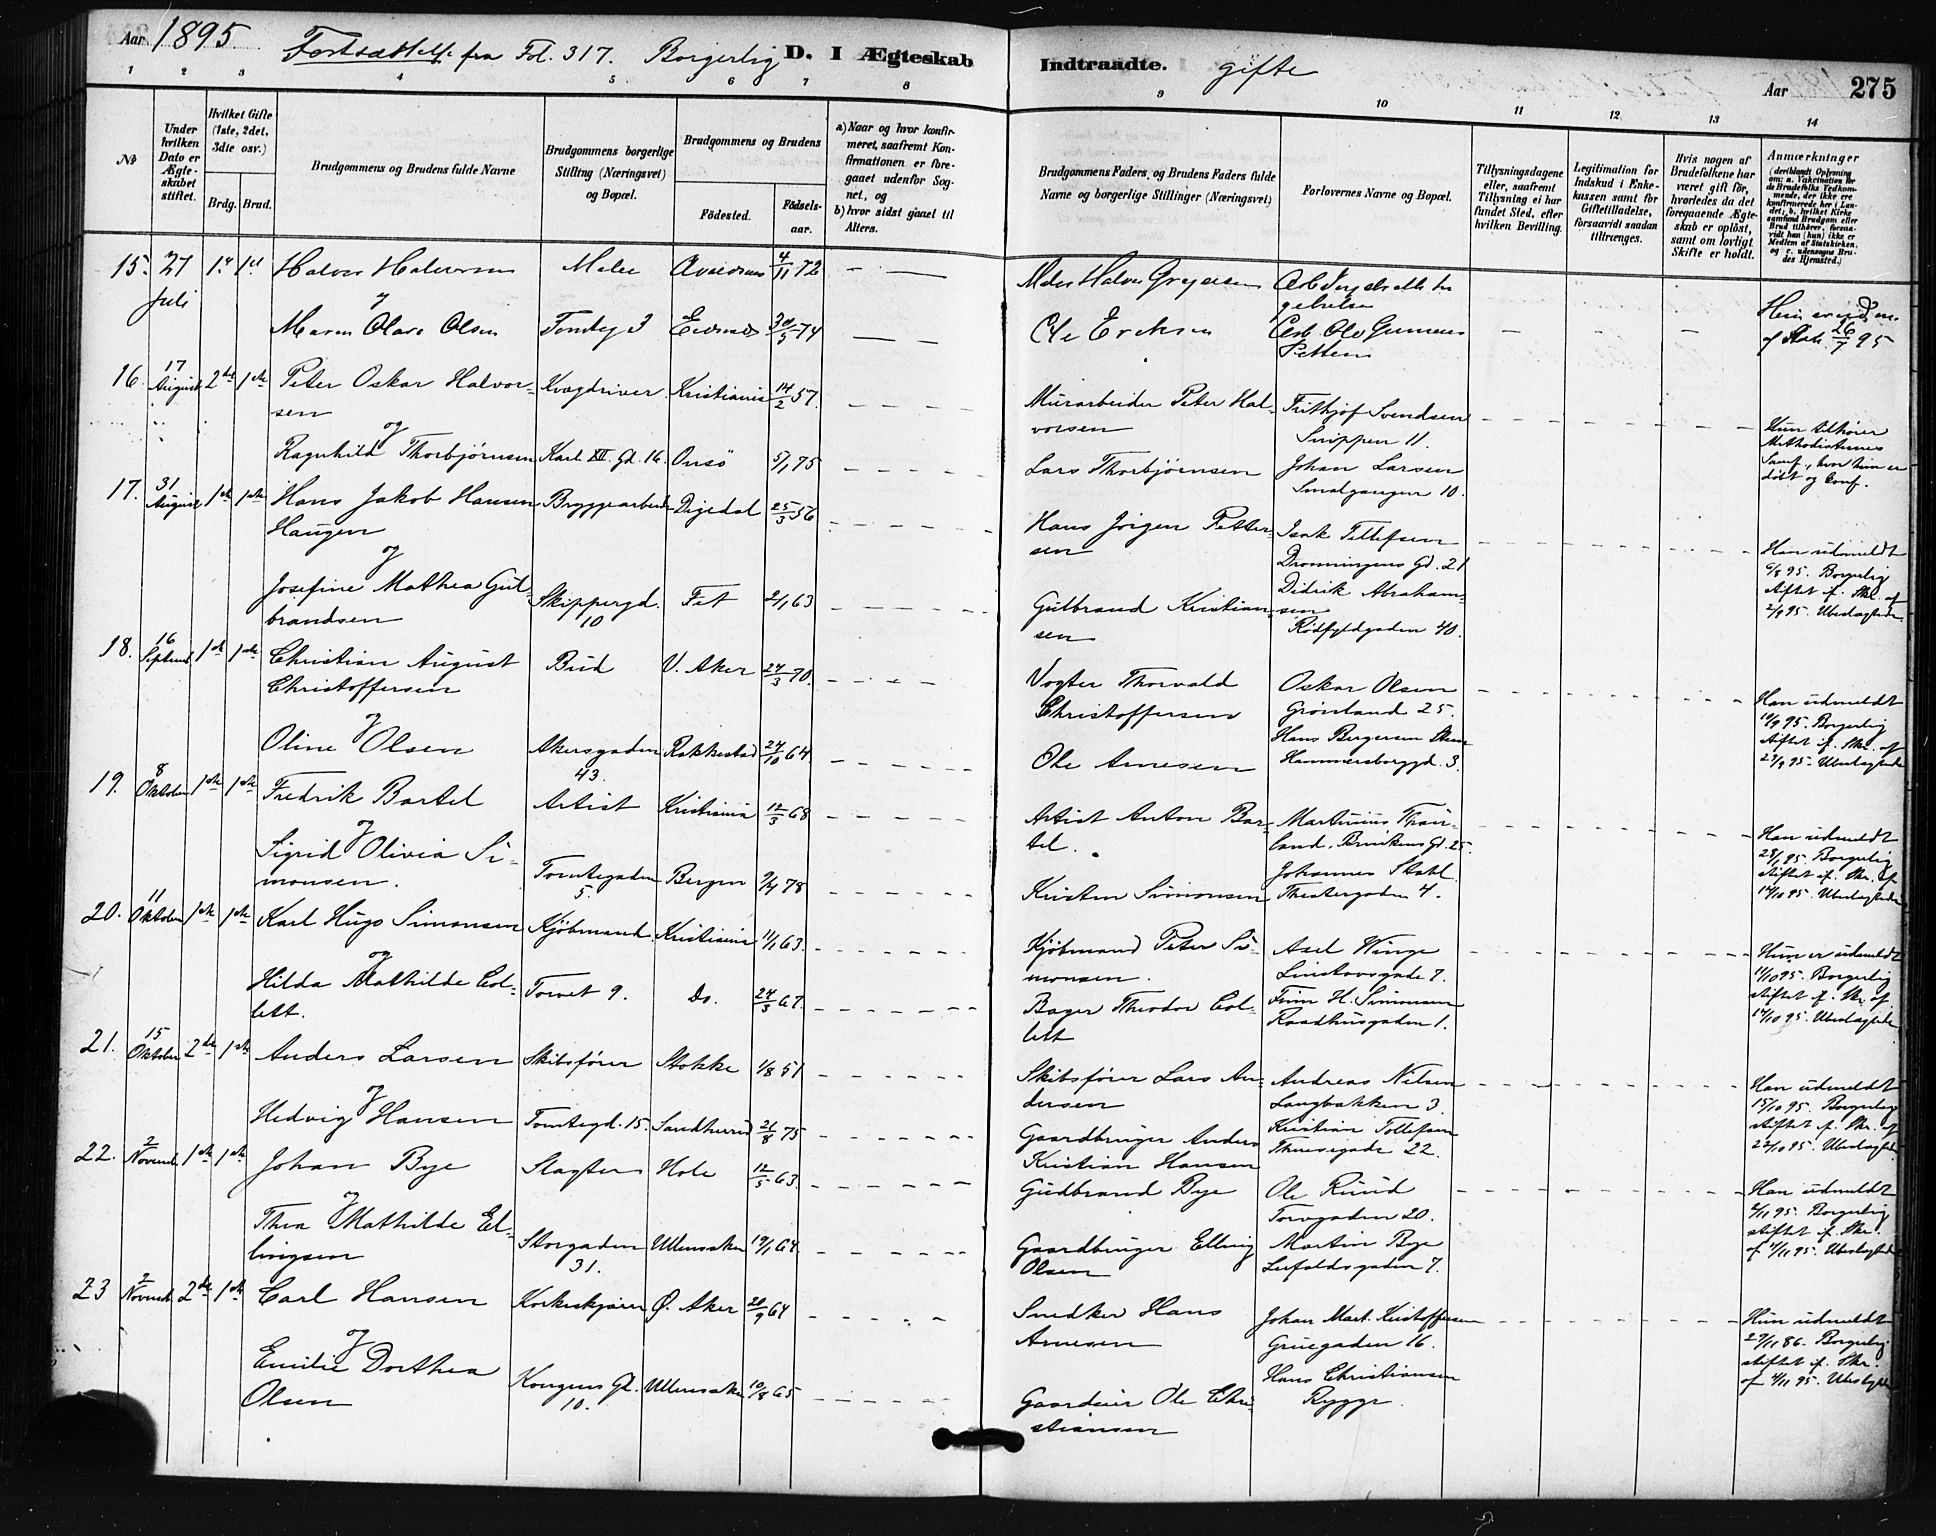 Aar 1895. Fortsættelse fra Fol. 317. Borgerlig D. I Ægteskab Indtraadte. gifte Aar 275
1 2 3 4 5 6 7 8 9 10 11 12 13 14
No
Under hvilken Dato er Ægteskabet stiftet.
Hvilket Gifte (1ste, 2det, 3die osv.)
Brdg. Brud.
Brudgommens og Brudens fulde Navne
Brudgommens borgerlige Stilling (Næringsvei) og Bopæl.
Brudgommens og Brudens
Fødested. Fødsels-aar.
a) Naar og hvor konfirmeret, saafremt Konfirmationen er foregaaet udenfor Sognet, og
b) hvor sidst gaaet til Alters.
Brudgommens Faders, og Brudens Faders fulde Navne og borgerlige Stillinger (Næringsvei)
Forlovernes Navne og Bopæl.
Tillysningsdagene eller, saafremt Tillysning ei har fundet Sted, efter hvilken Bevilling.
Legitimation for Indskud i Enkekassen samt for Giftetilladelse, forsaavidt saadan tiltrænges.
Hvis nogen af Brudefolkene har været gift før, hvorledes da det foregaaende Ægteskab er opløst, samt om lovligt Skifte er holdt.
Anmærkninger
(deriblandt Oplysning om: a. Vakcination for de Brudefolks Vedkommende, der ikke ere konfirmerede her i Landet, b. hvilket Kirkesamfund Brudgom eller Brud tilhører, forsaavidt han (hun) ikke er Medlem af Statskirken, og c. udensogns Brudes Hjemsted.)
15. 27 Juli Halvor Halvorsen Maler 4/11 72 Maler Halvor
og
Maren Olava Olsen Tomteg 3 Eidsvold 30/5 74 Ole Eriksen
26/7 95
16. 17 August 2det 1ste Peter Oskar Halvorsen Kvægdriver Kristiania 14/2 57. Murarbeider Peter Halvorsen Frithjof Svendsen
Snippen 11.
og
Ragnhild Thorbjørnsen Karl XII Gd. 16. Onsö 5/1 75 Lars Thorbjørnsen Johan Larsen
Smalgangen 10.
Hun tilhører Methodisternes Samf., hvor hun er døbt og conf.
17. 31 August 1ste 1ste Hans Jakob Hansen Haugen Bryggearbeider 25/3 56 Hans Jörgen Pettersen Isak Tellefsen
Dronningens Gd. 21
og
Josefine Mathea Gulbrandsen Skippergd. 10 Fet 2/1 63 Gulbrand Kristiansen Didrik Abrahamsen
Rødfyldgaden 40.
Han udmeldt 6/8 95. Borgerlig stiftet if. Skr. af 2/9 95. Ubeslagtede
18. 16 Septemb. 1ste 1ste Christian August Christoffersen Bud V. Aker 24/3 70. Vogter Thorvald Christoffersen Oskar Olsen
Grønland 25.
og
Oline Olsen Akersgaden 43. Rakkestad 24/10 64 Ole Arnesen Hans Bergersen
Hammersborggd. 3.
Han udmeldt 14/9 95. Borgerlig stiftet if. Skr. af 23/9 95. Ubeslagtede
19. 8 Oktober 1ste 1ste Fredrik Bartel Artist Kristiania 12/3 68 Artist Anton Bartel.
og
Sigrid Olivia Simonsen. Tomtegaden 5. Bergen 9/4 78 Kristen Simonsen Johannes Stabl
Theatergaden 4.
Han udmeldt 28/9 95. Borgerlig stiftet if. Skr. af 14/10 95. Ubeslagtede
20. 11 Oktober 1ste 1ste Karl Hugo Simonsen Kjöbmand Kristiania 11/1 63. Kjöbmand Peter Simonsen. Axel Winge
Linstowsgade 7.
og
Hilda Mathilde Collett. Torvet 9. Do. 24/3 67. Bager Theodor Collett Finn H. Simonsen
Raadhusgaden 1.
Hun er udmeldt 11/10 95. Borgerlig stiftet if. Skr. af 14/10 95. Ubeslagtede
21. 15 Oktober 2det 1ste Anders Larsen Skibsfører Stokke 1/8 51 Skibsfører Lars Andersen Andreas Nilsen
Langbakken 3.
og
Hedvig Hansen Tomtegd. 15. Sandherred 21/8 75 Gaardbruger Anders Kristian Hansen Kristian Tollefsen
Thuesegade 22.
Han udmeldt 15/10 95. Borgerlig stiftet if. Skr. af 22/10 95. Ubeslagtede
22. 2 Novemb. 1ste 1ste Johan Bye Slagter Hole 12/5 63. Gudbrand Bye Ole Ruud
Torvgaden 20.
og
Thea Mathilde Ellingsen Storgaden 31. Ullensaker 19/1 64. Gaardbruger Elling Olsen Martin Bye
Leufoldsgaden 7.
Han udmeldt 2/11 95. Borgerlig stiftet if. Skr. af 4/11 95. Ubeslagtede
23 2 Novemb. 2det 1ste Carl Hansen Korkeskjærer Ø. Aker 20/9 64 Snedker Hans Arnesen Johan Mart. Kristoffersen
Gruegaden 16.
og
Emilie Dorthea Olsen Kongens Gd. 10. Ullensaker 10/8 65 Gaardeier Ole Christiansen Hans Christiansen
Rygge.
Hun udmeldt 27/11 86. Borgerlig stiftet if. Skr. af 4/11 95. Ubeslagtede